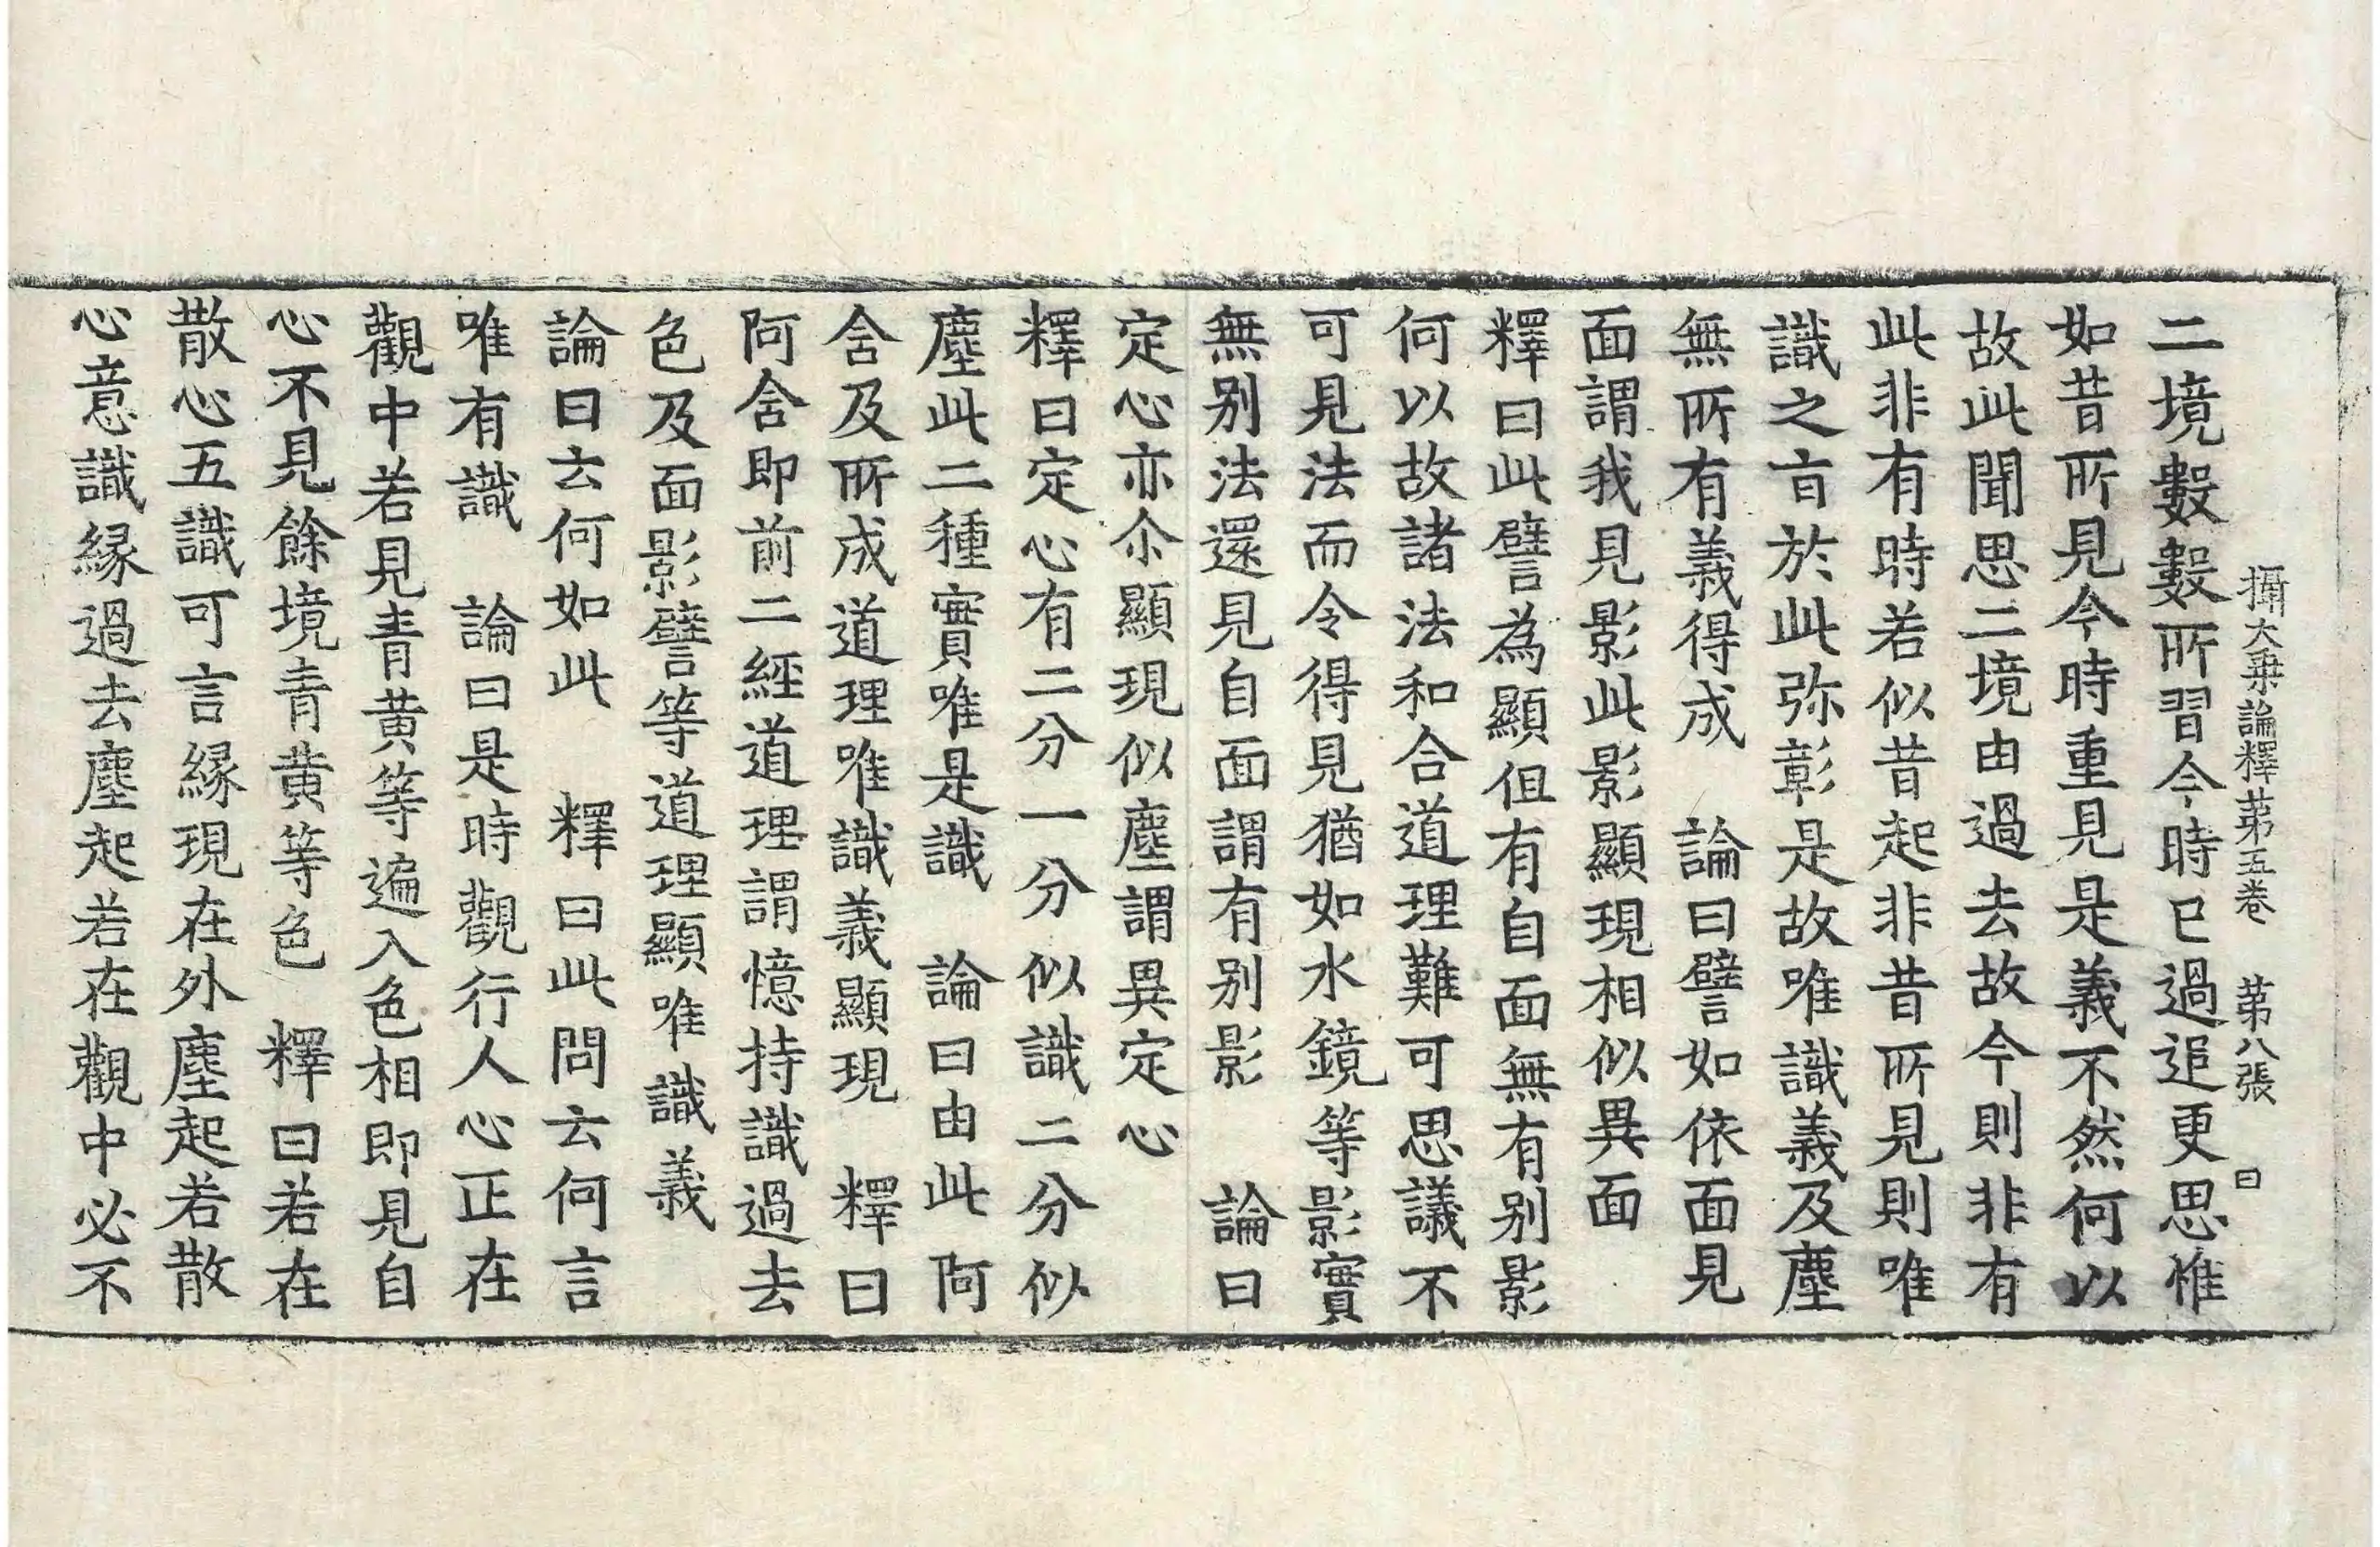 攝大乗論釋苐五卷　苐八張　曰
二境數數所習今時已過追更思惟
如昔所見今時重見是義不然何以
故此聞思二境由過去故今則非有
此非有時若似昔起非昔所見則唯
識之言於此弥彰是故唯識義及塵
無所有義得成　論曰譬如依面見
面謂我見影此影顯現相似異面
釋曰此譬為顯但有自面無有別影
何以故諸法和合道理難可思議不
可見法而令得見猶如水鏡等影實
無別法還見自面謂有別影　論曰
定心亦尒顯現似塵謂異定心
釋曰定心有二分一分似識二分似
塵此二種實唯是識　論曰由此阿
含及所成道理唯識義顯現　釋曰
阿含即前二經道理謂憶持識過去
色及面影譬等道理顯唯識義
論曰云何如此　釋曰此問云何言
唯有識　論曰是時觀行人心正在
觀中若見青黄等遍入色相即見自
心不見餘境青黄等色　釋曰若在
散心五識可言緣現在外塵起若散
心意識緣過去塵起若在觀中必不